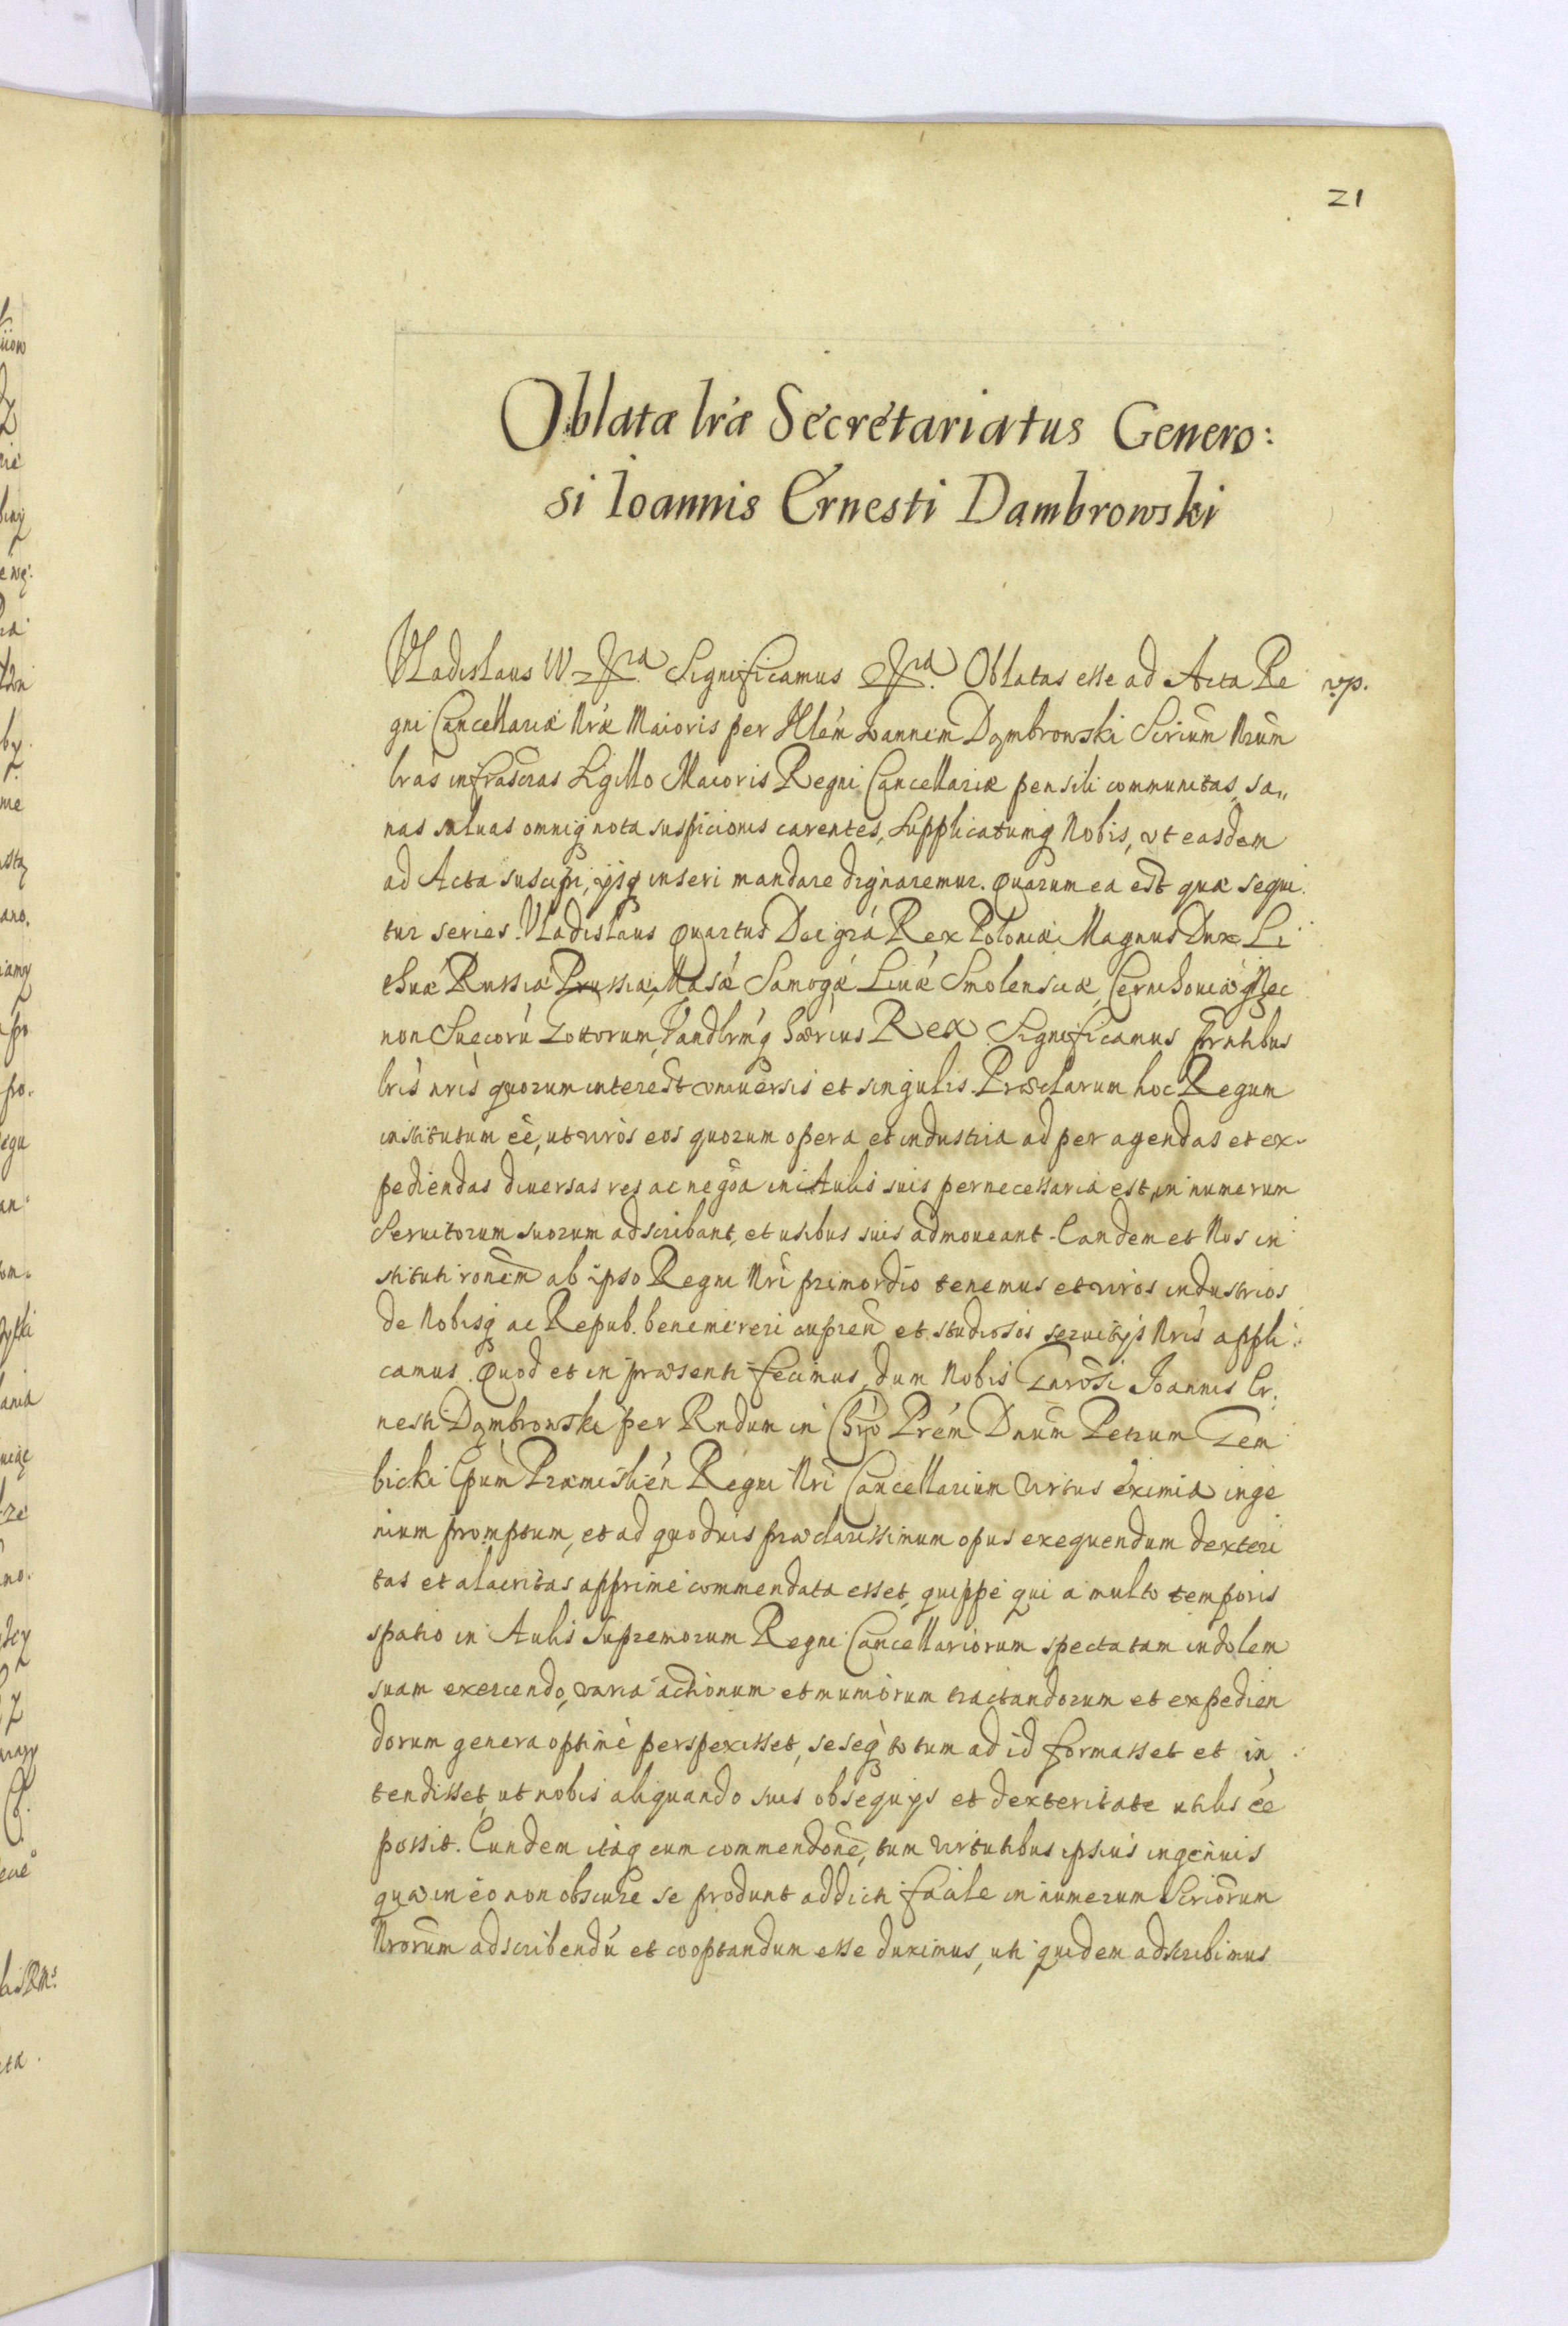 21
Oblatæ lrǽ Sécrétariatus Genero:
si Ioannis Ernesti Dambrowski
Vladislaus IV Significamus Oblatas esse ad Acta Re
gni Cancellariæ Nræ Maioris per Joannem Dąmbrowski Scrium Nrum
lras infrascras Sigillo Maioris Regni Cancellariæ pensili communitas, sa„
nas saluas omniq nota suspicionis carentes, Supplicatumq Nobis, vt easdem
ad Acta suscipi, ijsq inseri mandare dignaremur. Quarum ea est quæ sequi
tur series. Vladislaus Quartus Dei grá Rex Poloniæ Magnus Dux Li
thuæ Russiæ Prussiæ, Masæ Samogæ Liuæ Smolensciæ, Cernihouiæq Nec
non Suecorú Gottorum, Vandlrmq hærius Rex Significamus prntibus
lris nris quorum interest vniuersis et singulis. Præclarum hoc Regum
institutum éé, ut viros eos quorum opera et industria ad per agendas et ex-
pediendas diuersas res ac negoa in Aulis suis pernecessaria est, in numerum
Seruitorum suorum adscribant, et usibus suis admoueant. Eandem et Nos in
stituti ronem ab ipso Regni Nri primordio tenemus et viros industrios
de Nobisq ac Repub. benemereri et studiosos seruitijs Nris appli:
camus. Quod et in præsenti fecimus, dum Nobis Gnrosi Joannis Er:
nesti Dąmbrowski per Rndum in Chro Prém Dnum Petrum Gem
bicki Epum Præmislién Regni Nri Cancellarium virtus éximia inge
nium promptum, et ad quoduis præclarissimum opus exequendum dexteri
tas et alacritas apprimé commendata esset, quippé qui a multo temporis
spatio in Aulis Supremorum Regni Cancellariorum spectatam indolem
suam exercendo, varia actionum et muniorum tractandorum et expedien
dorum genera optimè perspexisset, seseq totum ad id formasset et in
tendisset, ut nobis aliquando suis obsequijs et dexteritate utilis éé
possit. Eundem itaq cum commendone, tum virtutibus ipsius ingenuis
quæ in éo non obscure se produnt addicti facile in numerum Scriorum
Nrorum adscribendú et cooptandum esse duximus, uti quidem adscribimus